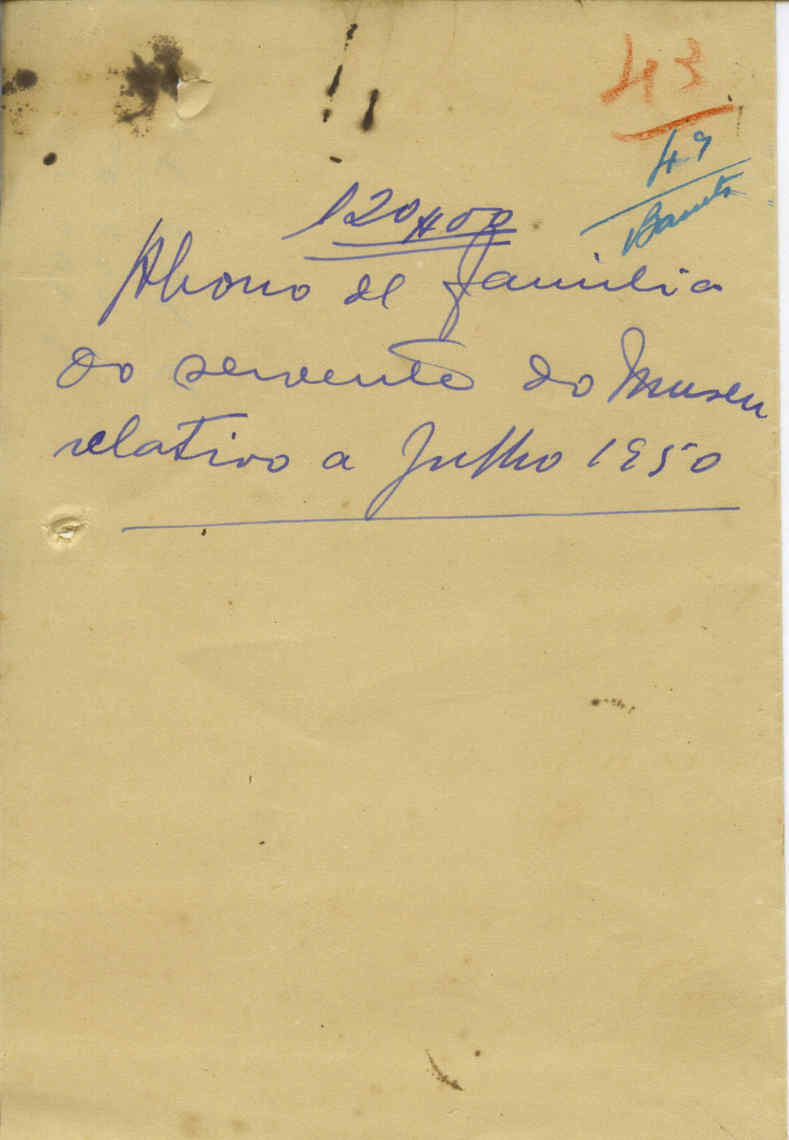 43
49
120$00
Abono de familia
do servente do Museu
relativo a Julho 1950